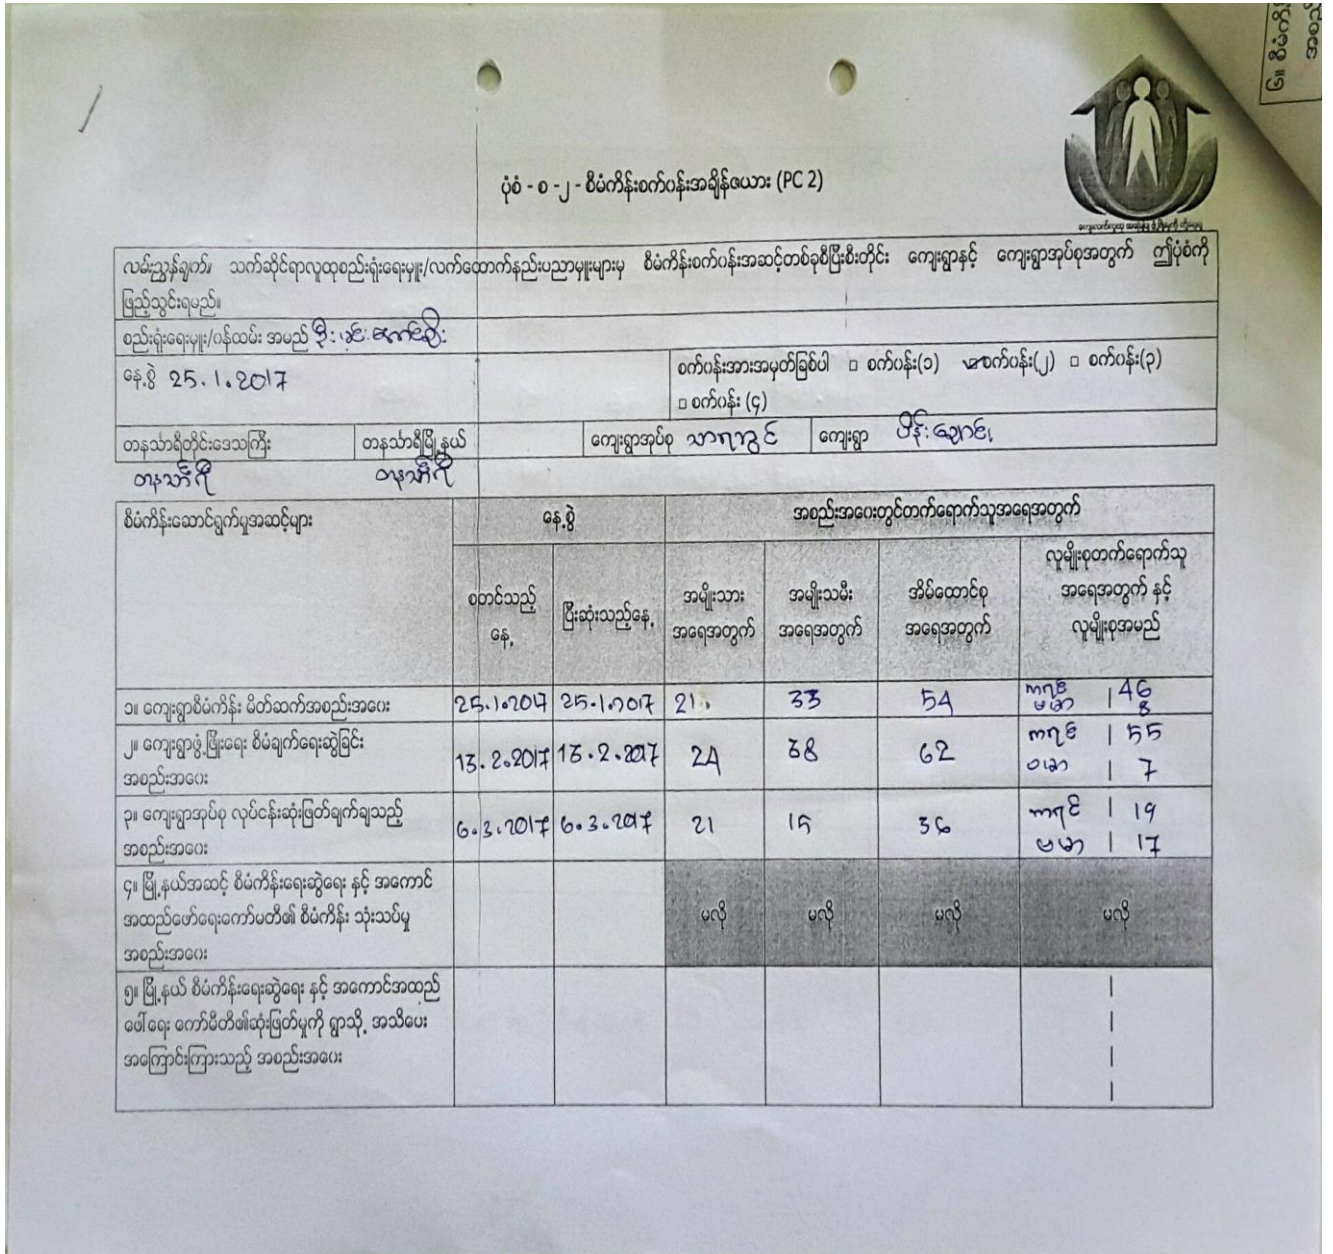 ပုံစံ - စ -၂ - စီမံကိန်းစက်ဝန်းအချိန်ဇယား (PC 2)
လမ်းညွှန်ချက်။ သက်ဆိုင်ရာလူထုစည်းရုံးရေးမှူး/လက်ထောက်နည်းပညာမှူးများမှ စီမံကိန်းစက်ဝန်းအဆင့်တစ်ခုစီပြီးစီးတိုင်း ကျေးရွာနှင့် ကျေးရွာအုပ်စုအတွက် ဤပုံစံကို
ဖြည့်သွင်းရမည်။
စည်းရုံးရေးမှူး/ဝန်ထမ်း အမည်
နေ့စွဲ 25.1.2017
စက်ဝန်းအားအမှတ်ခြစ်ပါ □ စက်ဝန်း(၁) စက်ဝန်း(၂) □ စက်ဝန်း(၃)
□ စက်ဝန်း (၄)
တနင်္သာရီတိုင်းဒေသကြီး တနင်္သာရီမြို့နယ် ကျေးရွာအုပ်စု ကျေးရွာ
တနင်္သာရီ တနင်္သာရီ
စီမံကိန်းဆောင်ရွက်မှုအဆင့်များ နေ့စွဲ အစည်းအဝေးတွင်တက်ရောက်သူအရေအတွက်
စတင်သည့်
နေ့
ပြီးဆုံးသည့်နေ့
အမျိုးသား
အရေအတွက်
အမျိုးသမီး
အရေအတွက်
အိမ်ထောင်စု
အရေအတွက်
လူမျိုးစုတက်ရောက်သူ
အရေအတွက် နှင့်
လူမျိုးစုအမည်
၁။ ကျေးရွာစီမံကိန်း မိတ်ဆက်အစည်းအဝေး 25.1.2017 25.1.2017 21 33 54 ကရင် | 46
ဗမာ 8
၂။ ကျေးရွာဖွံ့ဖြိုးရေး စီမံချက်ရေးဆွဲခြင်း
အစည်းအဝေး
13.2.2017 13.2.2017 24 38 62 ကရင် | 55
ဗမာ | 7
၃။ ကျေးရွာအုပ်စု လုပ်ငန်းဆုံးဖြတ်ချက်ချသည့်
အစည်းအဝေး
6.3.2017 6.3.2017 21 15 36 ကရင် | 19
ဗမာ | 17
၄။ မြို့နယ်အဆင့် စီမံကိန်းရေးဆွဲရေး နှင့် အကောင်
အထည်ဖော်ရေးကော်မတီ၏ စီမံကိန်း သုံးသပ်မှု
အစည်းအဝေး
မလို မလို မလို မလို
၅။ မြို့နယ် စီမံကိန်းရေးဆွဲရေး နှင့် အကောင်အထည်
ဖေါ်ရေး ကော်မီတီ၏ဆုံးဖြတ်မှုကို ရွာသို့ အသိပေး
အကြောင်းကြားသည့် အစည်းအဝေး